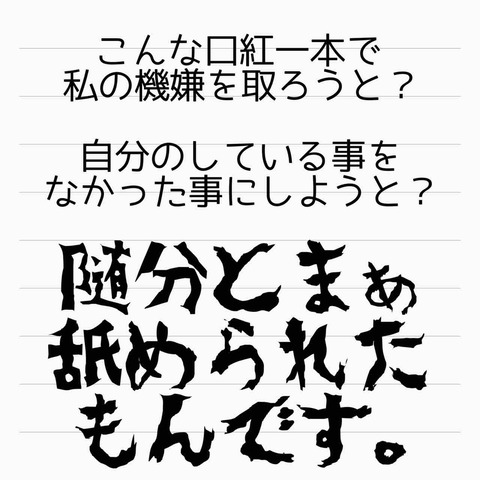 こんな口紅一本で
私の機嫌を取ろうと？
自分のしている事を
なかった事にしようと？
随分とまぁ
舐められた
もんです。